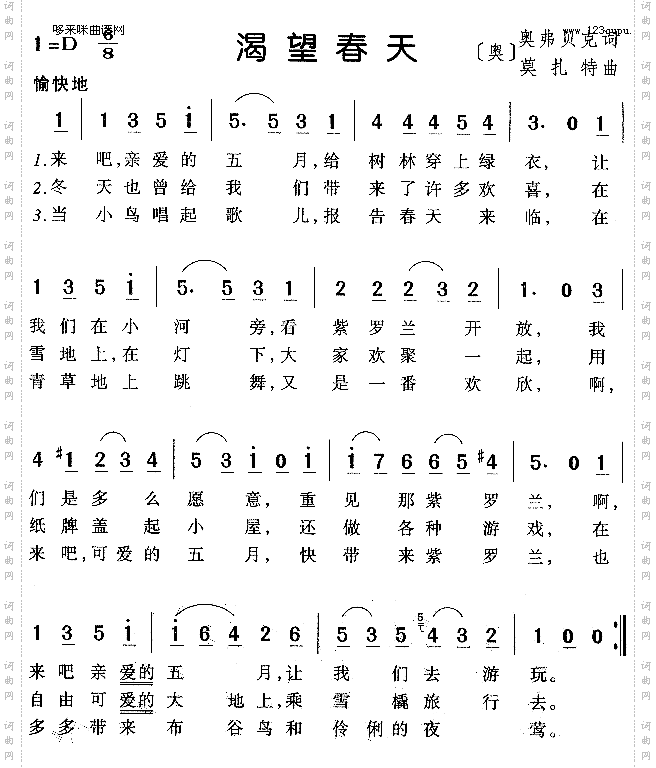 哆来咪曲谱网
1=D 6/8
渴望春天
www.123qupu.
〔奥〕奥弗贝克词
莫扎特曲
愉快地
1 | 1 3 5 i | 5. 5 3 1 | 4 4 4 5 4 | 3. 0 1
1.来 吧,亲爱的 五 月,给 树林穿上绿 衣,让
2.冬 天也曾给我 们带 来了许多欢 喜,在
3.当 小鸟唱起歌 儿,报 告春天 来 临,在
1 3 5 i | 5. 5 3 1 | 2 2 2 3 2 | 1. 0 3
我们在小 河 旁,看 紫罗兰 开 放,我
雪地上,在灯 下,大 家欢聚 一 起,用
青草地上跳 舞,又 是一番 欢 欣,啊,
4 #1 2 3 4 | 5 3 i 0 i | i 7 6 6 5 #4 | 5. 0 1
们是多么愿 意,重 见那紫 罗 兰,啊,
纸牌盖起小 屋,还 做 各种 游 戏,在
来吧,可爱的 五 月,快 带 来紫 罗 兰,也
1 3 5 i | i 6 4 2 6 | 5 3 5 5 4 3 2 | 1 0 0 :‖
来吧亲爱的五 月,让 我 们去 游 玩。
自由可爱的大 地上,乘 雪 橇旅 行 去。
多多带来布 谷鸟和 伶 俐的夜 莺。
词曲网